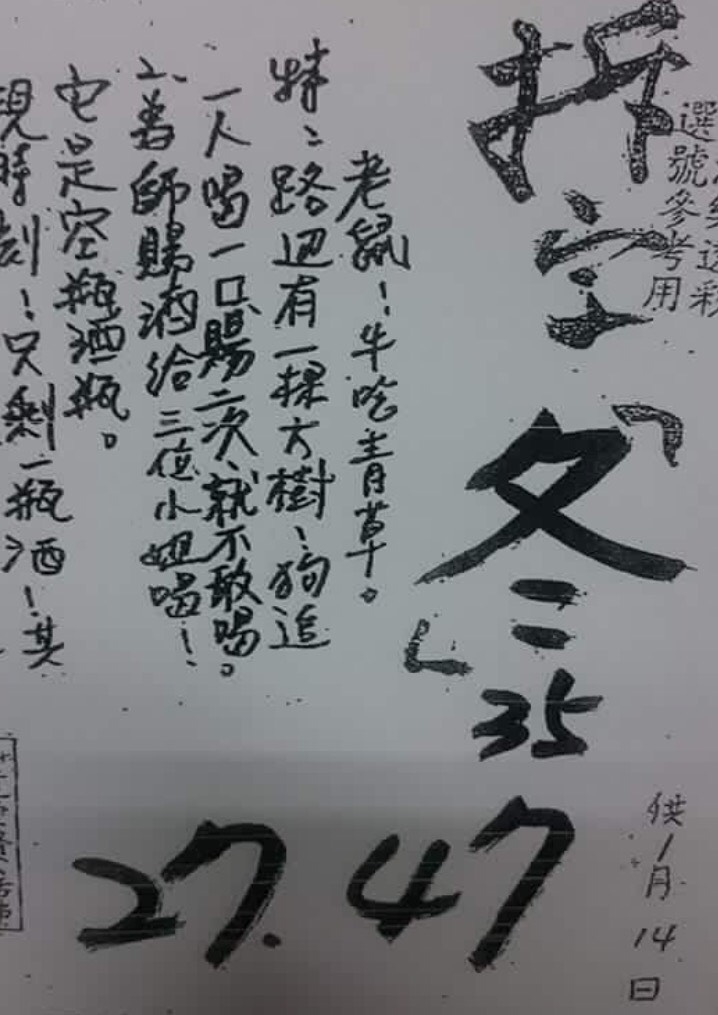 選號參考用
拆字
「冬」
35
47
27.
供1月14日
老鼠！牛吃青草。
特：路边有一棵大樹、狗追
一人喝一口、賜二次、就不敢喝。
2、善師賜酒給三位小姐喝！
它是空瓶酒瓶。
現時刻！只剩一瓶酒！其